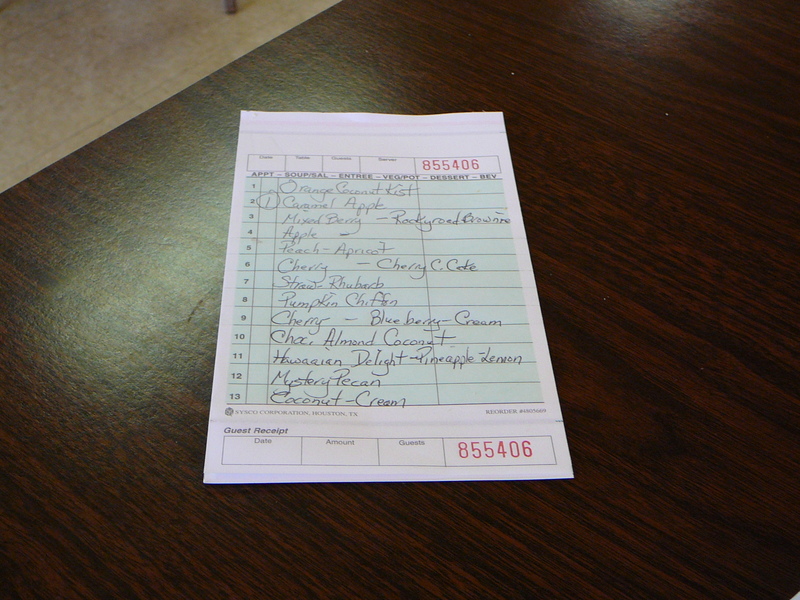 Date Table Guests Server 855406
APPT – SOUP/SAL – ENTREE – VEG/POT – DESSERT – BEV
1 Orange Coconut Kist
2 1 Caramel Apple
3 Mixed Berry – Rockyroad Brownie
4 Apple –
5 Peach-Apricot
6 Cherry – Cherry C. Cake
7 Straw-Rhubarb
8 Pumpkin Chiffon
9 Cherry – Blueberry-Cream
10 Choc. Almond Coconut
11 Hawaaian Delight-Pineapple-Lemon
12 Mystery Pecan
13 Coconut-Cream
SYSCO CORPORATION, HOUSTON, TX REORDER #4805669
Guest Receipt
Date Amount Guests 855406